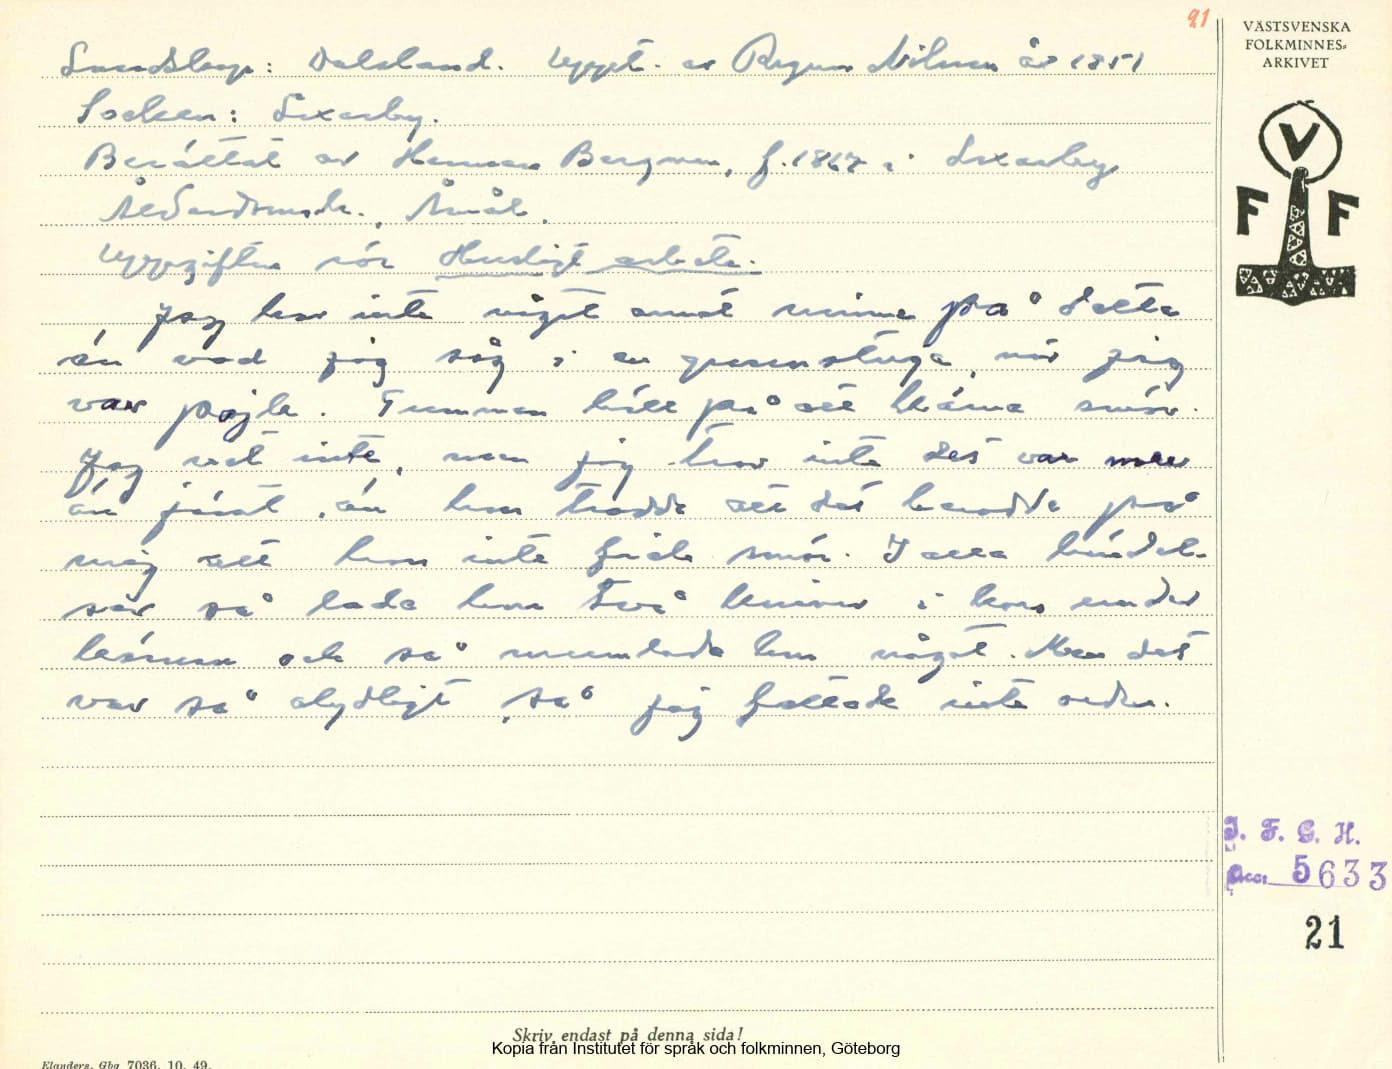 21
VÄSTSVENSKA
FOLKMINNES-
ARKIVET
V
F F
Landskap: Dalsland. Uppt. av Ragnar Nilsson år 1951
Socken: Ånimskog
Berättat av Herman Bergman, f. 1867 i
Ålderdomsh., Åmål.
Uppgiften rör Husligt arbete.
Jag har inte något annat minne på detta
än vad jag såg i en grannstuga, när jag
var pojke. Gumman höll på att kärna smör.
Jag vet inte, men jag tror inte det var mer
än jämt, än hon trodde att det berodde på
mig att hon inte fick smör. I alla händel-
ser så lade hon två knivar i kors under
kärnan och så mumlade hon något. Men det
var så otydligt, så jag fattade inte orden.
I. F. G. H.
Acc. 5633
21
Skriv endast på denna sida!
Kopia från Institutet för språk och folkminnen, Göteborg
Elanders, Gbg 7036. 10. 49.